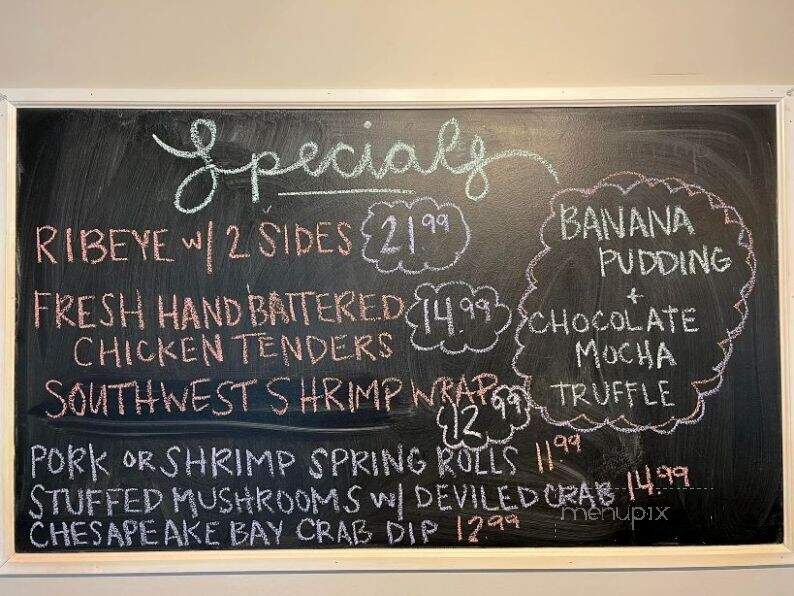 Specials
RIBEYE w/ 2 SIDES 21.99
FRESH HAND BATTERED
CHICKEN TENDERS 14.99
SOUTHWEST SHRIMP WRAP
12.99
PORK OR SHRIMP SPRING ROLLS 11.99
STUFFED MUSHROOMS w/ DEVILED CRAB 14.99
CHESAPEAKE BAY CRAB DIP 12.99
BANANA
PUDDING
+
CHOCOLATE
MOCHA
TRUFFLE
menupix